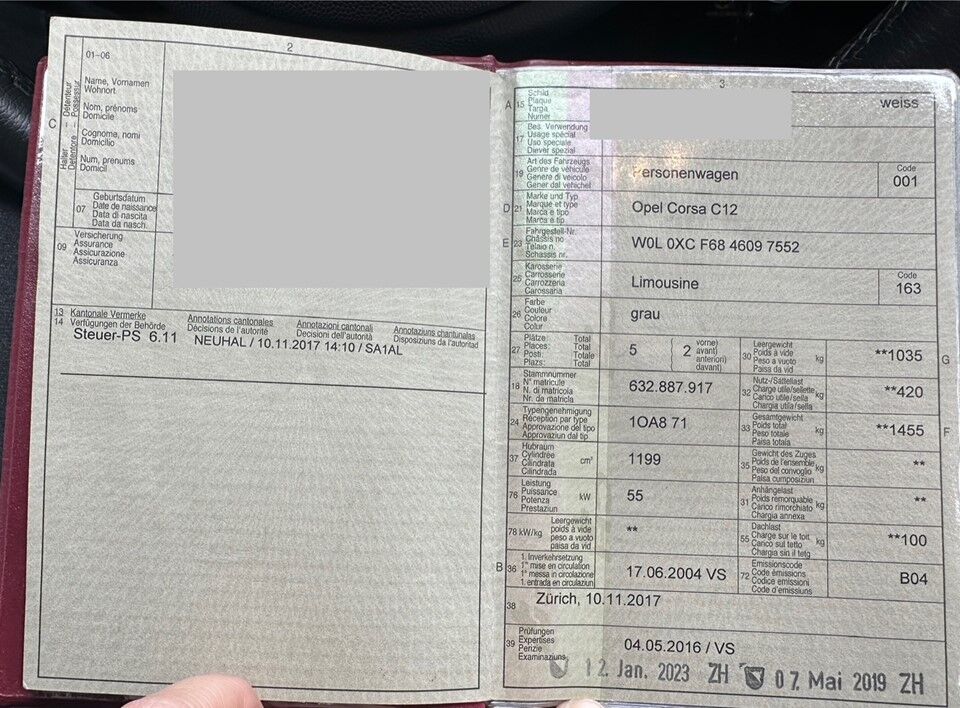 2
01–06
Name, Vornamen
Wohnort
Nom, prénoms
Domicile
Cognome, nomi
Domicilio
Num, prenums
Domicil
C
Halter Détenteur
Detentore Possessur
07
Geburtsdatum
Date de naissance
Data di nascita
Data da nasch.
09
Versicherung
Assurance
Assicurazione
Assicuranza
13 Kantonale Vermerke Annotations cantonales Annotazioni cantonali Annotaziuns chantunalas
14 Verfügungen der Behörde Décisions de l'autorité Decisioni dell'autorità Disposiziuns da l'autoritad
Steuer-PS 6.11 NEUHAL / 10.11.2017 14:10 / SA1AL
3
A 15
Schild
Plaque
Targa
Numer
weiss
17
Bes. Verwendung
Usage spécial
Uso speciale
Diever spezial
19
Art des Fahrzeugs
Genre de véhicule
Genere di veicolo
Gener dal vehichel
Personenwagen
Code
001
D 21
Marke und Typ
Marque et type
Marca e tipo
Marca e tip
Opel Corsa C12
E 23
Fahrgestell-Nr.
Châssis no
Telaio n.
Schassis nr.
W0L 0XC F68 4609 7552
25
Karosserie
Carrosserie
Carrozzeria
Carossaria
Limousine
Code
163
26
Farbe
Couleur
Colore
Colur
grau
27
Plätze: Total
Places: Total
Posti: Totale
Plazs: Total
5
2
vorne)
avant)
anteriori)
davant)
30
Leergewicht
Poids à vide
Peso a vuoto
Paisa da vid
kg
**1035
G
18
Stammnummer
N° matricule
N. di matricola
Nr. da matricla
632.887.917
32
Nutz-/Sattellast
Charge utile/sellette
Carico utile/sella
Chargia utila/sella
kg
**420
24
Typengenehmigung
Réception par type
Approvazione del tipo
Approvaziun dal tip
1OA8 71
33
Gesamtgewicht
Poids total
Peso totale
Paisa totala
kg
**1455
F
37
Hubraum
Cylindrée
Cilindrata
Cilindrada
cm³
1199
35
Gewicht des Zuges
Poids de l'ensemble
Peso del convoglio
Paisa cumposiziun
kg
**
76
Leistung
Puissance
Potenza
Prestaziun
kW
55
31
Anhängelast
Poids remorquable
Carico rimorchiato
Chargia annexa
kg
**
78 kW/kg
Leergewicht
poids à vide
peso a vuoto
paisa da vid
**
55
Dachlast
Charge sur le toit
Carico sul tetto
Chargia sin il tetg
kg
**100
B 36
1. Inverkehrsetzung
1re mise en circulation
1a messa in circolazione
1. entrada en circulaziun
17.06.2004 VS
72
Emissionscode
Code émissions
Codice emissioni
Code d'emissiuns
B04
38
Zürich, 10.11.2017
39
Prüfungen
Expertises
Perizie
Examinaziuns
04.05.2016 / VS
12. Jan. 2023 ZH 07. Mai 2019 ZH